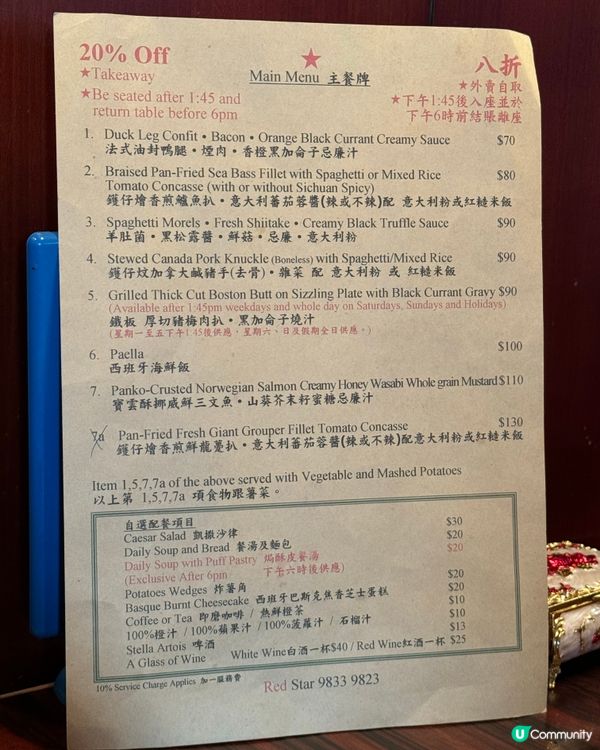 20% Off
★Takeaway
★Be seated after 1:45 and
return table before 6pm
★
Main Menu 主餐牌
八折
★外賣自取
★下午1:45後入座並於
下午6時前結賬離座
1. Duck Leg Confit • Bacon • Orange Black Currant Creamy Sauce $70
法式油封鴨腿•煙肉•香橙黑加侖子忌廉汁
2. Braised Pan-Fried Sea Bass Fillet with Spaghetti or Mixed Rice $80
Tomato Concasse (with or without Sichuan Spicy)
鑊仔燴香煎鱸魚扒•意大利蕃茄蓉醬(辣或不辣)配 意大利粉或紅糙米飯
3. Spaghetti Morels • Fresh Shiitake • Creamy Black Truffle Sauce $90
羊肚菌•黑松露醬•鮮菇•忌廉•意大利粉
4. Stewed Canada Pork Knuckle (Boneless) with Spaghetti/Mixed Rice $90
鑊仔炆加拿大鹹豬手(去骨)•雜菜 配 意大利粉 或 紅糙米飯
5. Grilled Thick Cut Boston Butt on Sizzling Plate with Black Currant Gravy $90
(Available after 1:45pm weekdays and whole day on Saturdays, Sundays and Holidays)
鐵板 厚切豬梅肉扒•黑加侖子燒汁
(星期一至五下午1:45後供應，星期六、日及假期全日供應。)
6. Paella $100
西班牙海鮮飯
7. Panko-Crusted Norwegian Salmon Creamy Honey Wasabi Whole grain Mustard $110
寶雲酥挪威鮮三文魚•山葵芥末籽蜜糖忌廉汁
7a Pan-Fried Fresh Giant Grouper Fillet Tomato Concasse $130
鑊仔燴香煎鮮龍躉扒•意大利蕃茄蓉醬(辣或不辣)配意大利粉或紅糙米飯
Item 1,5,7,7a of the above served with Vegetable and Mashed Potatoes
以上第 1,5,7,7a 項食物跟薯菜。
自選配餐項目
Caesar Salad 凱撒沙律 $30
Daily Soup and Bread 餐湯及麵包 $20
Daily Soup with Puff Pastry 焗酥皮餐湯 $20
(Exclusive After 6pm 下午六時後供應)
Potatoes Wedges 炸薯角 $20
Basque Burnt Cheesecake 西班牙巴斯克焦香芝士蛋糕 $20
Coffee or Tea 即磨咖啡 / 熱鮮橙茶 $10
100%橙汁 / 100%蘋果汁 / 100%菠蘿汁 / 石榴汁 $10
Stella Artois 啤酒 $13
A Glass of Wine White Wine白酒一杯$40 / Red Wine紅酒一杯 $25
10% Service Charge Applies 加一服務費
Red Star 9833 9823
U Community